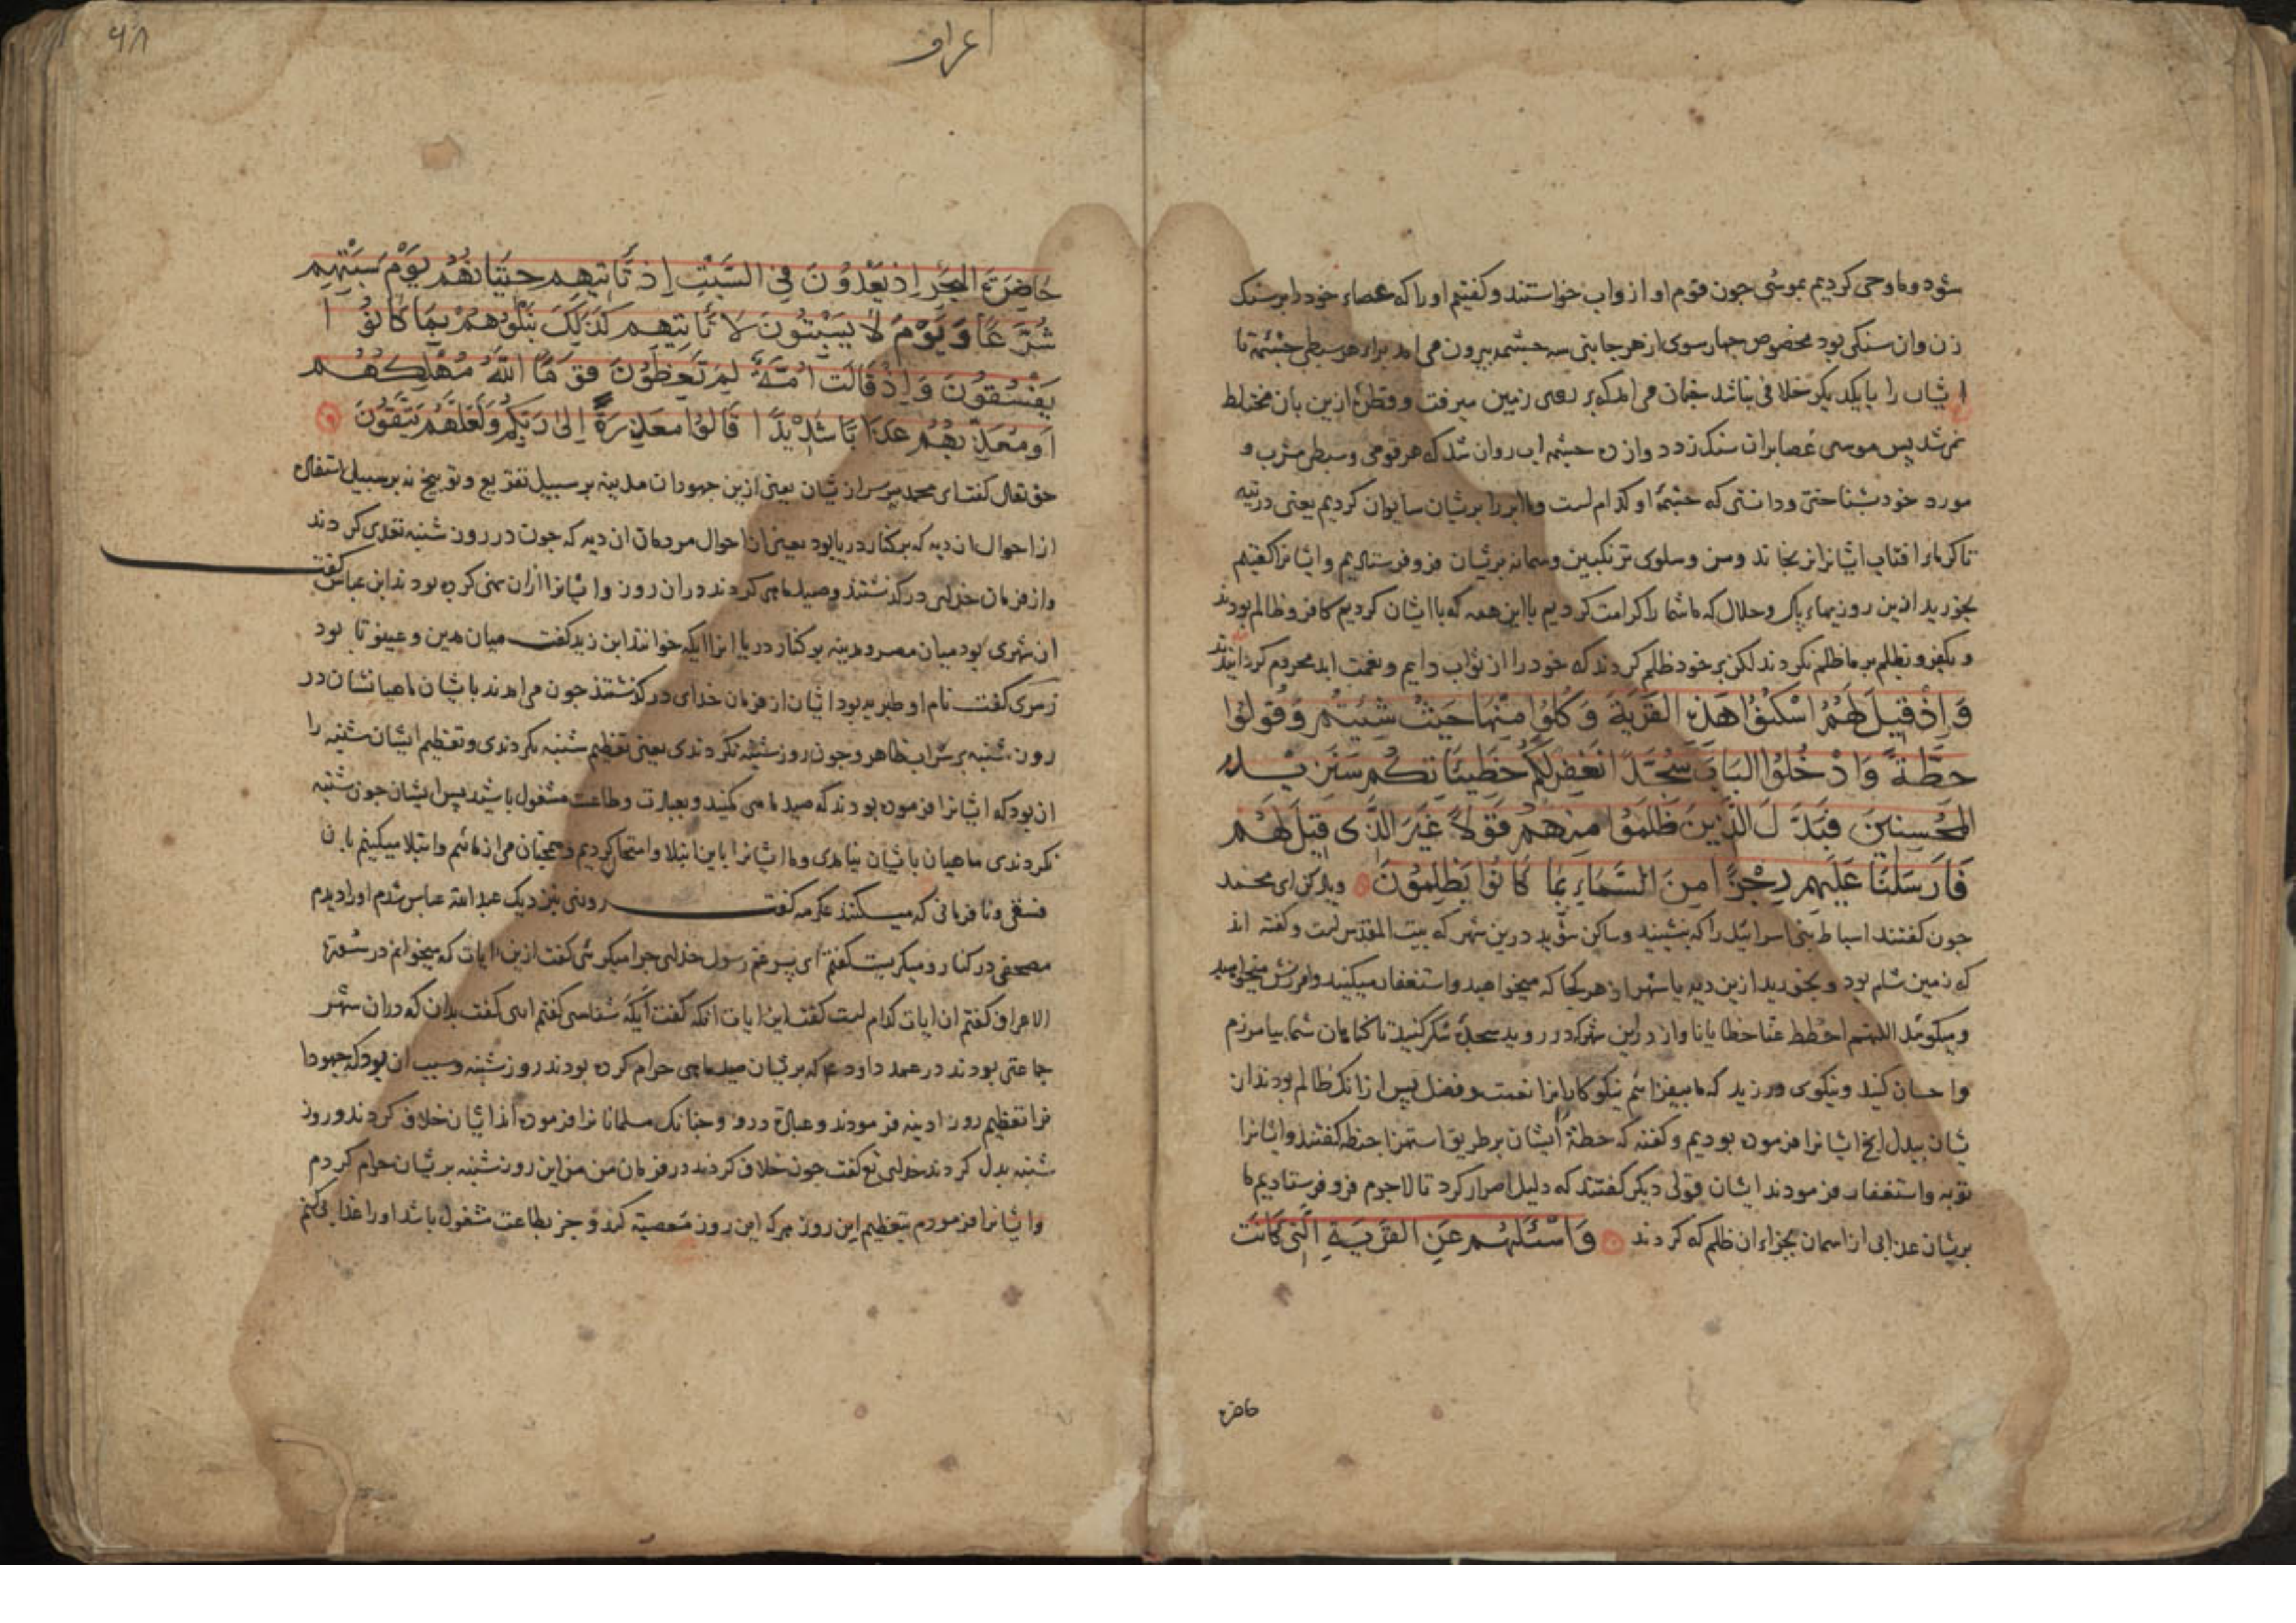 شود و ما وحی کردیم بموسی جون قوم او ازو اب خواستند و کفتیم او را که عصاء خود را بر سنک
زن وان سنکی بود مخصوص جهار سوی از هر جانبی سه جشمه بیرون می امد براء هر سبطی جشمهٔ تا
ایشان را با یکدیکر خلافی نباشد جنان می امد که بر روی زمین میرفت و قطرهٔ ازین بان مختلط
نمی شد بس موسی عصا بران سنک زد دوازده جشمه اب روان شد که هر قومی و سبطی مشرب و
مورد خود بشناختی و دانستی که جشمهٔ او کدام است و ما ابر را بریشان سایوان کردیم یعنی در تیه
تا کرماء افتاب ایشانرا نرنجاند و من و سلوی ترنکبین و سمانه بریشان فرو فرستادیم و ایشانرا کفتیم
بخورید ازین روزیهاء پاک و حلال که ما شما را کرامت کردیم با این همه که با ایشان کردیم کافر و ظالم بودند
و بکفر و بظلم بر ما ظلم نکردند لکن بر خود ظلم کردند که خود را از ثواب دایم و نعمت ابد محروم کردانیدند
وَاِذْ قِیلَ لَهُمُ اسْکُنُوا هَذِهِ القَرْیَةَ وَ کُلُوا مِنْهَا حَیْثُ شِئْتُمْ وَ قُولُوا
حِطَّةٌ وَادْخُلُوا البَابَ سُجَّدًا نَغْفِرْ لَکُمْ خَطِیئَاتِکُمْ سَنَزِیدُ
المُحْسِنِینَ فَبَدَّلَ الَّذِینَ ظَلَمُوا مِنْهُمْ قَوْلاً غَیْرَ الَّذِی قِیلَ لَهُمْ
فَاَرْسَلْنَا عَلَیْهِمْ رِجْزًا مِنَ السَّمَاءِ بِمَا کَانُوا یَظْلِمُونَ ویاد کن ای محمد
جون کفتند اسباط بنی اسرائیل را که بنشینید و ساکن شوید درین شهر که بیت المقدس است و کفته اند
که زمین شام بود و بخورید ازین دیه یا شهر از هر کجا که میخواهید و استغفار میکنید و امرزش میخواهید
و میکوئید اللهم احطط عنا خطایانا و از در این شهر که در روید سجدهٔ شکر کنید تا کناهان شما بیامرزم
و احسان کنید و نیکوی ورزید که ما بیفزائیم نیکوکارانرا نعمت و فضل بس ازانکه ظالم بودند از
یشان ببدل انج ایشانرا فرموده بودیم و کفته که حطهٔ ایشان بر طریق استهزا حنطه کفتند و ایشانرا
توبه و استغفار فرمودند ایشان قولی دیکر کفتند که دلیل اصرار کرد تا لاجرم فرو فرستادیم ما
بریشان عذابی از اسمان بجزاء ان ظلم که کردند وَاسْئَلْهُمْ عَنِ القَرْیَةِ الَّتِی کَانَتْ
حاضرة
۹۸
اعراف
حَاضِرَةَ البَحْرِ اِذْ یَعْدُونَ فِی السَّبْتِ اِذْ تَأْتِیهِمْ حِیتَانُهُمْ یَوْمَ سَبْتِهِمْ
شُرَّعًا وَ یَوْمَ لَا یَسْبِتُونَ لَا تَأْتِیهِمْ کَذَلِکَ نَبْلُوهُمْ بِمَا کَانُوا
یَفْسُقُونَ وَ اِذْ قَالَتْ اُمَّةٌ لِمَ تَعِظُونَ قَوْمًا اللّٰهُ مُهْلِکُهُمْ
اَوْ مُعَذِّبُهُمْ عَذَابًا شَدِیْدًا قَالُوا مَعْذِرَةً اِلَىٰ رَبِّکُمْ وَلَعَلَّهُمْ یَتَّقُونَ
حق تعالی کفت ای محمد ببرس از یشان یعنی ازین جهودان مدینه بر سبیل تقریع و توبیخ نه بر سبیل استفهام
از احوال ان دیه که بر کنار دریا بود یعنی از احوال مردمان ان دیه که جون در روز شنبه تعدی کردند
و از فرمان خدای در کذشتند و صید ماهی کردند دران روز و ایشانرا ازان نهی کرده بودند ابن عباس کفت
ان شهری بود میان مصر و مدینه بر کنار دریا انرا ایله خوانند ابن زید کفت میان مدین و عینونا بود
زهری کفت نام او طبریه بود ایشان از فرمان خدای در کذشتند جون می امدند بایشان ماهیانشان در
روز شنبه بر سر اب ظاهر و جون روز شنبه نکردندی یعنی تعظیم شنبه نکردندی و تعظیم ایشان شنبه را
ان بود که ایشانرا فرموده بودند که صید ماهی نکنید و بعبادت و طاعت مشغول باشید بس ایشان جون شنبه
نکردندی ماهیان بایشان نیامدی و ما ایشانرا باین ابتلا و امتحان کردیم و همجنان می ازمائیم و ابتلا میکنیم بان
فسقی و نافرمانی که میکنند عکرمه کفت روزی بنزدیک عبدالله عباس شدم او را دیدم
مصحفی در کنار و میکریست کفتم ای پسر عم رسول خدای جرا میکریی کفت ازین ایات که میخوانم در سورة
الاعراف کفتم ان ایات کدام است کفت این ایات انکه کفت ایله شناسی کفتم اری کفت بدان که دران شهر
جماعتی بودند در عهد داود ع که بریشان صید ماهی حرام کرده بودند روز شنبه و سبب ان بود که جهودا
نرا تعظیم روز ادینه فرمودند و عبادة درو و جنانک مسلمانانرا فرموده اند ایشان خلاف کردند و روز
شنبه بدل کردند خدای تع کفت جون خلاف کردند در فرمان من من این روز شنبه بریشان حرام کردم
و ایشانرا فرمودم بتعظیم این روز هر که این روز معصیة کند و جز بطاعت مشغول باشد او را عذاب کنم